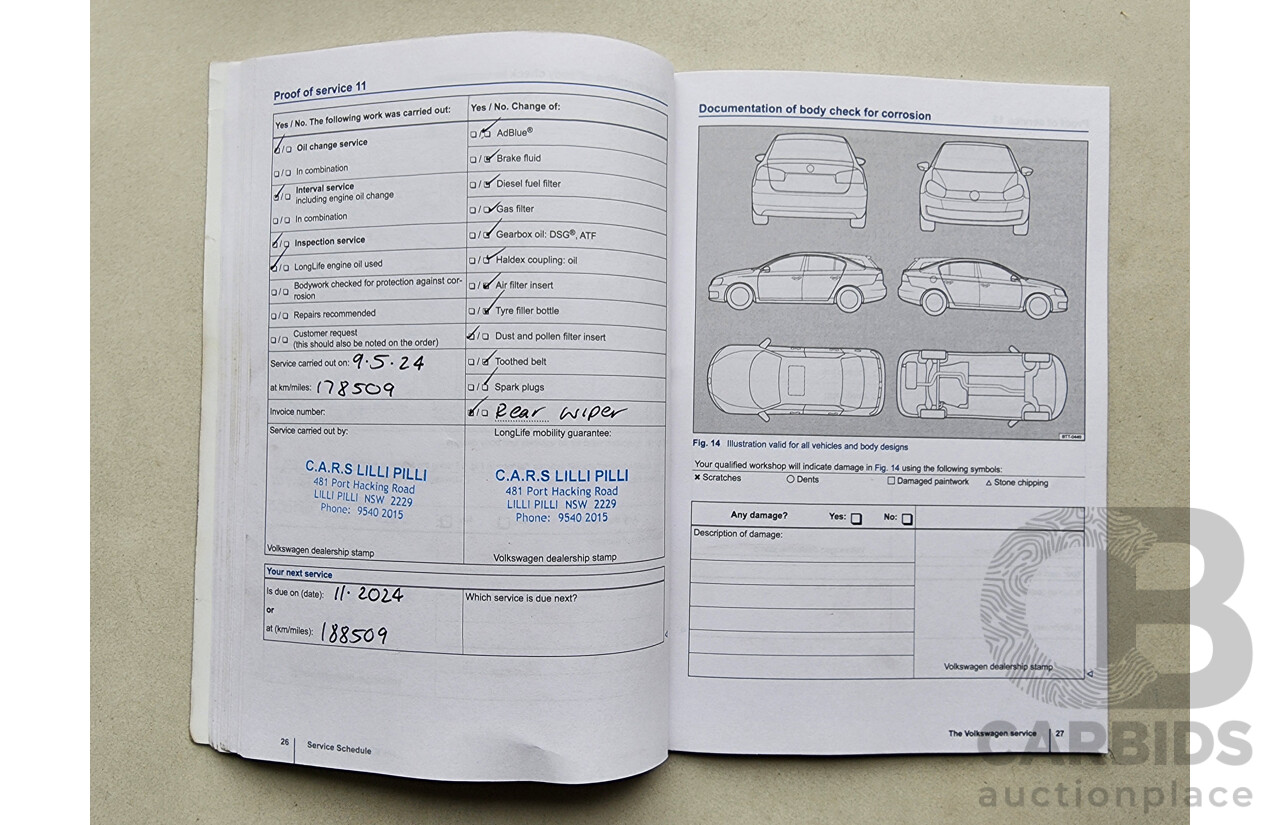 Proof of service 11
Yes / No. The following work was carried out:
Oil change service
In combination
Interval service
including engine oil change
In combination
Inspection service
LongLife engine oil used
Bodywork checked for protection against cor-
rosion
Repairs recommended
Customer request
(this should also be noted on the order)
Service carried out on: 9.5.24
at km/miles: 178509
Invoice number:
Service carried out by:
C.A.R.S LILLI PILLI
481 Port Hacking Road
LILLI PILLI NSW 2229
Phone: 9540 2015
Volkswagen dealership stamp
Yes / No. Change of:
AdBlue®
Brake fluid
Diesel fuel filter
Gas filter
Gearbox oil: DSG®, ATF
Haldex coupling: oil
Air filter insert
Tyre filler bottle
Dust and pollen filter insert
Toothed belt
Spark plugs
Rear wiper
LongLife mobility guarantee:
C.A.R.S LILLI PILLI
481 Port Hacking Road
LILLI PILLI NSW 2229
Phone: 9540 2015
Volkswagen dealership stamp
Your next service
Is due on (date): 11. 2024
or
at (km/miles): 188509
Which service is due next?
26 Service Schedule
Documentation of body check for corrosion
BTT-0449
Fig. 14 Illustration valid for all vehicles and body designs
Your qualified workshop will indicate damage in Fig. 14 using the following symbols:
× Scratches ○ Dents □ Damaged paintwork △ Stone chipping
Any damage? Yes: □ No: □
Description of damage:
Volkswagen dealership stamp
The Volkswagen service 27
CB
CARBIDS
auctionplace